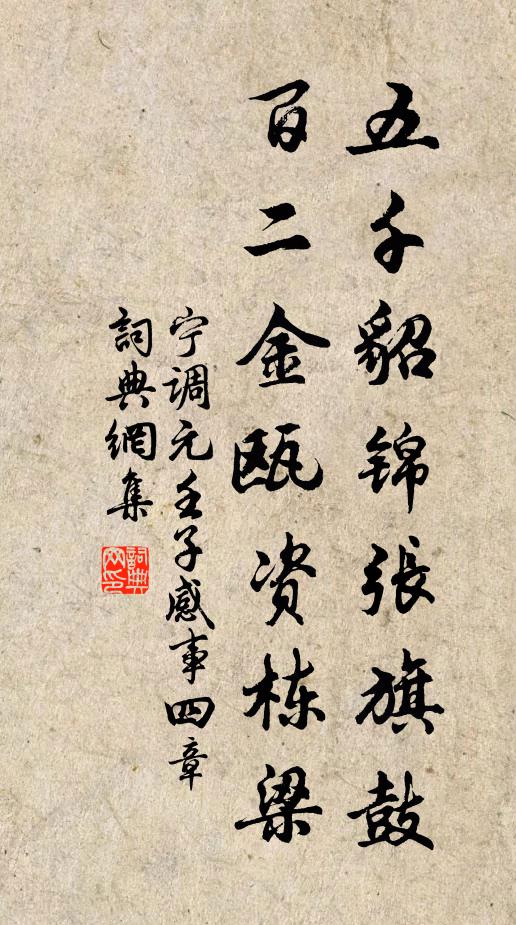 五千貂锦張旗鼓
百二金瓯资栋梁
宁调元壬子感事四章
詞典網集
詞典网印